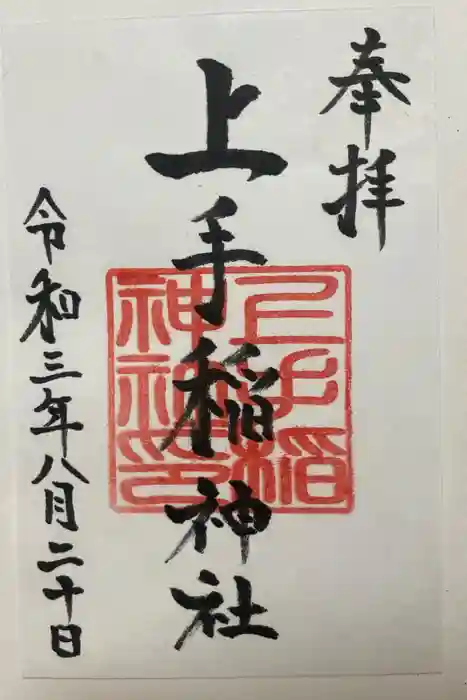 奉拝
上手稲神社
令和三年八月二十日
上手稲
神社